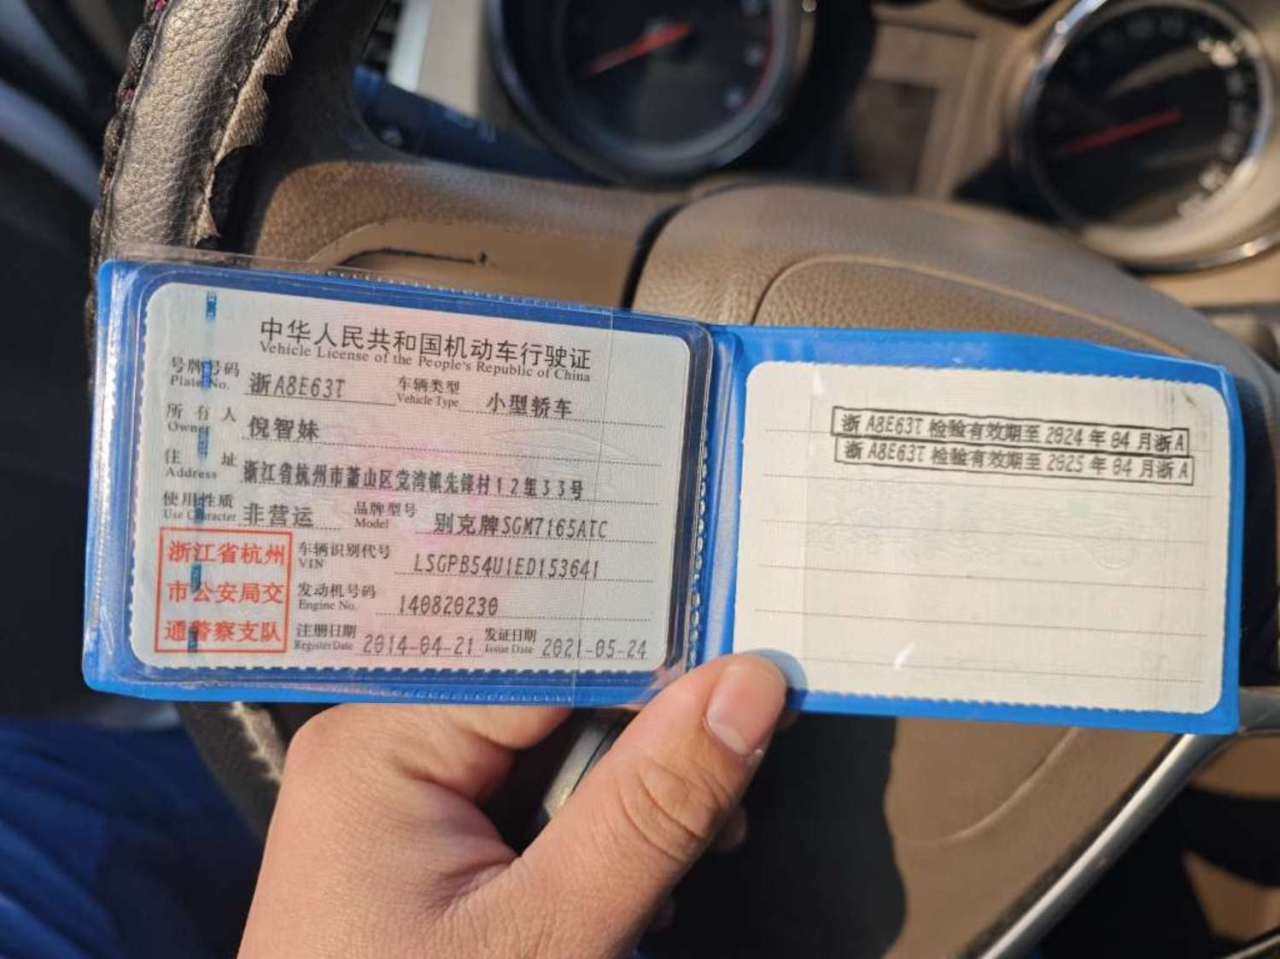 中华人民共和国机动车行驶证
Vehicle License of the People's Republic of China
号牌号码 浙A8E63T 车辆类型 小型轿车
Plate No. Vehicle Type
所有人 倪智妹
Owner
住址 浙江省杭州市萧山区党湾镇先锋村12组33号
Address
使用性质 非营运 品牌型号 别克牌SGM7165ATC
Use Character Model
浙江省杭州
市公安局交
通警察支队
车辆识别代号 LSGPB54U1ED153641
VIN
发动机号码 140820230
Engine No.
注册日期 2014-04-21 发证日期 2021-05-24
Register Date Issue Date
浙A8E63T检验有效期至2024年04月浙A
浙A8E63T检验有效期至2025年04月浙A